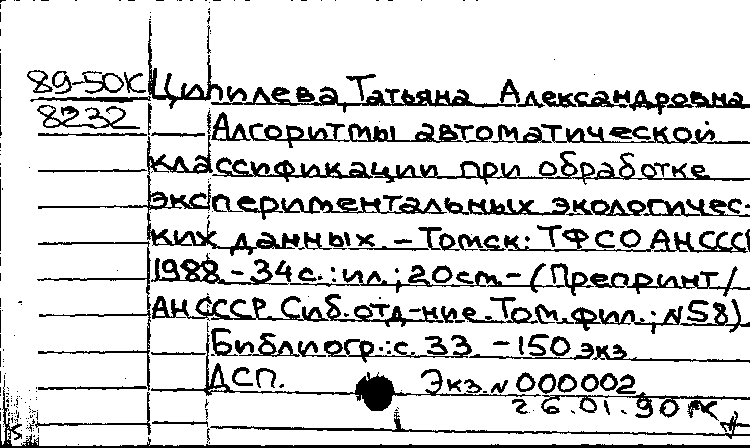 89-50К Ципилева, Татьяна Александровна
8232 Алгоритмы автоматической
классификации при обработке
экспериментальных экологичес-
ких данных. – Томск: ТФСО АН СССР
1988. – 34 с.: ил.; 20 cm. – (Препринт /
АН СССР. Сиб. отд-ние. Том. фил.; N58)
Библиогр.: с. 33. – 150 экз.
ДСП. Экз. N 000002
26.01.90